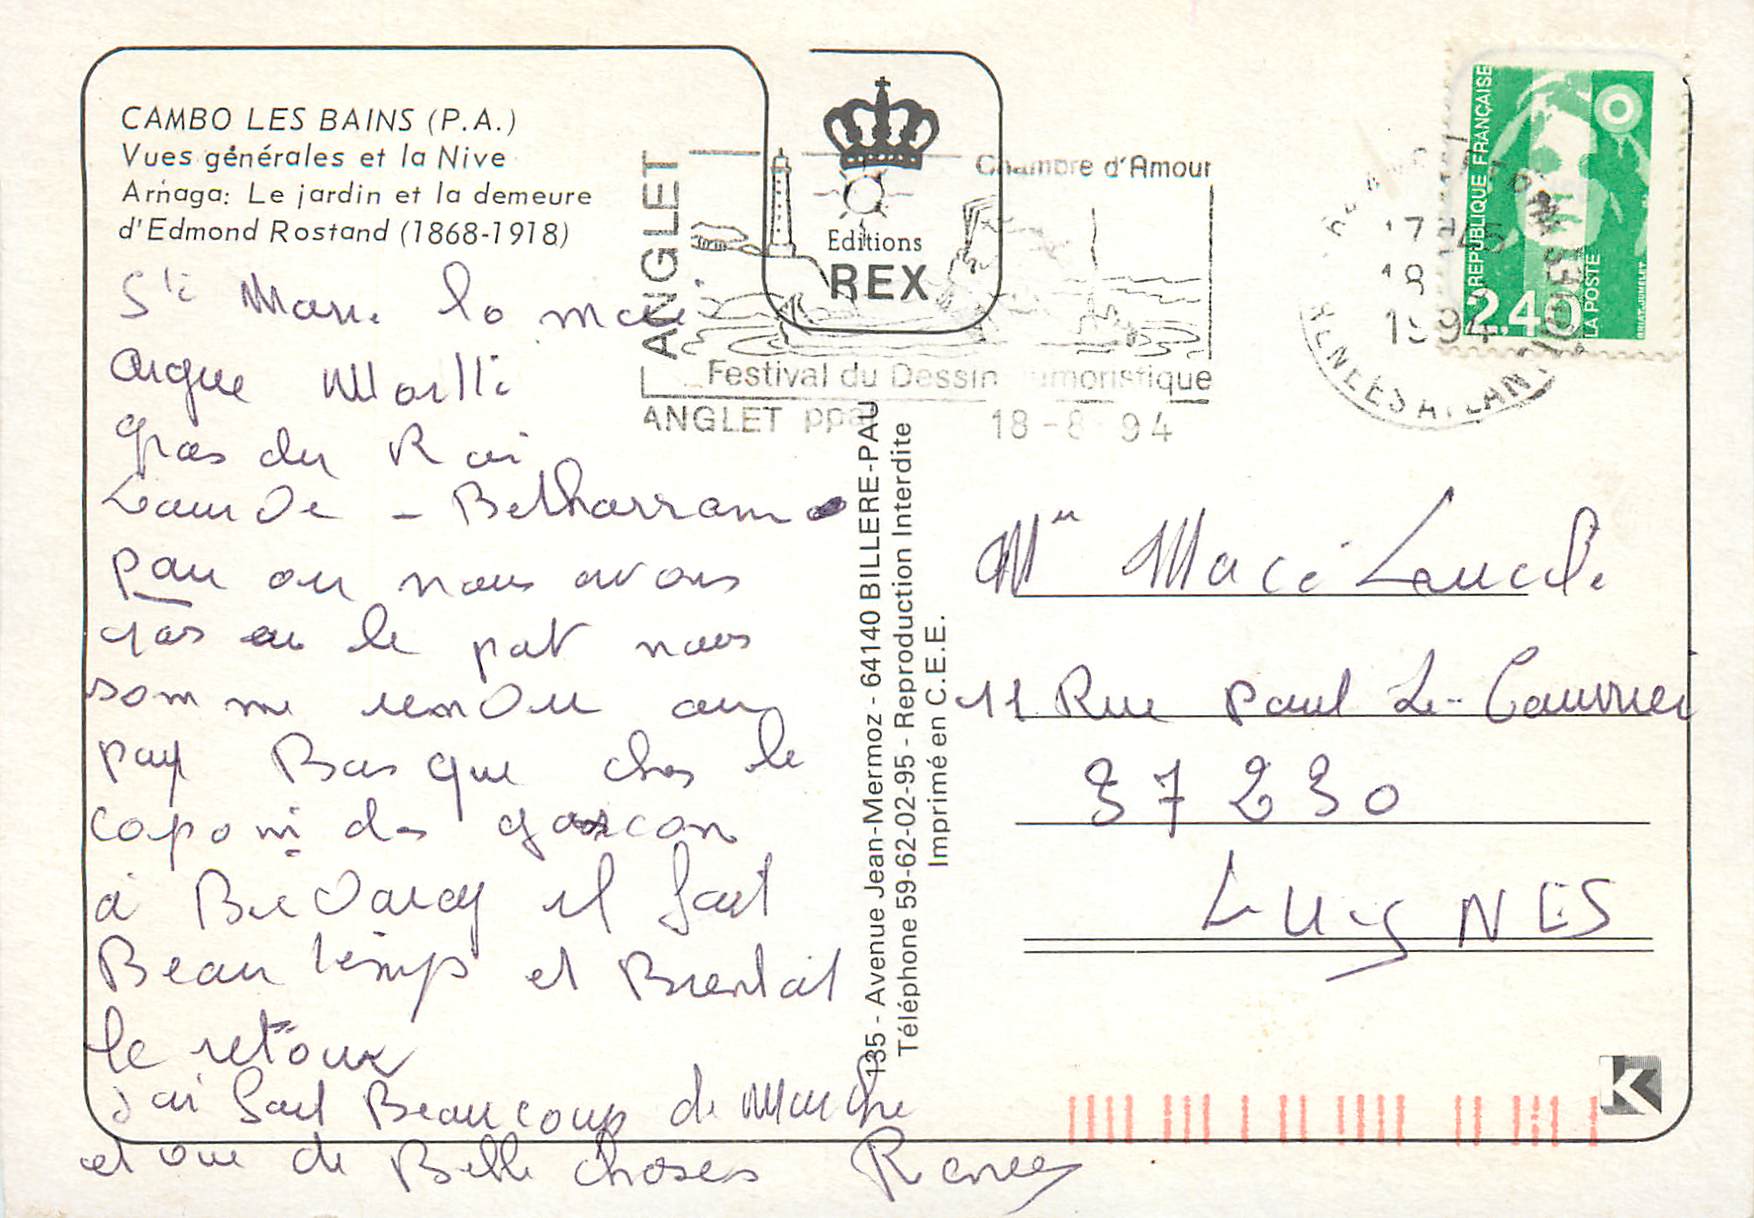 CAMBO LES BAINS (P.A.)
Vues générales et la Nive
Arnaga: Le jardin et la demeure
d'Edmond Rostand (1868-1918)
Editions
REX
ANGLET
Chambre d'Amour
Festival du Dessin umoristique
ANGLET ppal 18-8 94
17 H 45
18 8
1994
RENEES ATLAN
REPUBLIQUE FRANÇAISE
2,40
LA POSTE
BRIAT-JUMELET
Ste Marie la mer
aigue Morte
gras du Roi
Lourde - Betharram
pau ou nous avons
gas en le pat nous
somme rendu au
pay Basque chez le
capomi des gascon
à Bidaray il fait
Beau temps et Bientait
le retour
J'ai fait Beaucoup de Marche
et vue de Belle choses Renée
135 - Avenue Jean-Mermoz - 64140 BILLERE-PAU
Téléphone 59-62-02-95 - Reproduction Interdite
Imprimé en C.E.E.
Mme Macé Lucile
11 Rue Paul Le-Courrier
37230
LUYNES
K